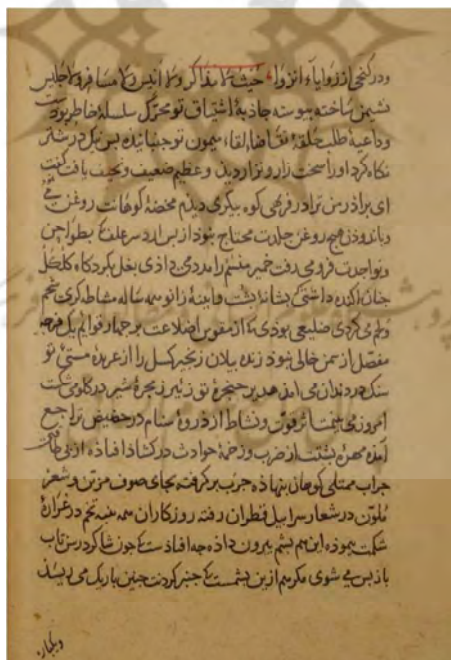 ودر کنجی از زوایاء انزوا حیث لا مذاکر ولا انیس ولا مسافر ولا جلیس
نشیمن ساخته پیوسته جاذبهٔ اشتیاق تو محرک سلسلهٔ خاطر بودست
وداعیهٔ طلب حلقهٔ تقاضا لقاء میمون تو جنبانیده پس نیک در شتر
نگاه کرد اورا سخت زار ونزار دید وعظیم ضعیف ونحیف یافت گفت
ای برادر من ترا در فربهی کوه پیکری دیدم محضهٔ کوهانت روغن
وباندودن هیچ روغن جلدت محتاج نبود از بس ارد سر علف که بطواحن
ونواجذت فرو می رفت خمیر را مدد می دادی بغل بر درگاه
جنان آکنده داشتی که بشانهٔ پشت وآینهٔ زانو همه ساله مشاطه گری شحم
ولحم می کردی ضلیعی بودی که از مقوس اضلاعت بر جهار قوایم یک
مفصل از سمن خالی نبود ژنده پیلان زنجیر گسل را از عربدهٔ مستی تو
سنک در دندان می آمد هدیر حنجرهٔ تو زئیر زنجرهٔ شیر در گلو می شکست
امروز می بینم اثر قوت ونشاط از ذروهٔ سنام در حضیض تراجع
آمده مهرهٔ پشتت از ضرب وزخمهٔ حوادث در کشاد افتاده از بی طاقتی
جراب ممتلی کوهان بنهاده جرب بر گرفته بجای صوف مزین وشعر
ملون در شعار سرابیل قطران رفته روزگاران همه پنبه تخم در غرارهٔ
شکمت بیموده این هم پشم بیرون داده جه افتادت که جون شاگرد رسن تاب
باز پس می شوی مگر هم ازین پشمست که جنبر گردنت جنین باریک می ریسد
ویکبار